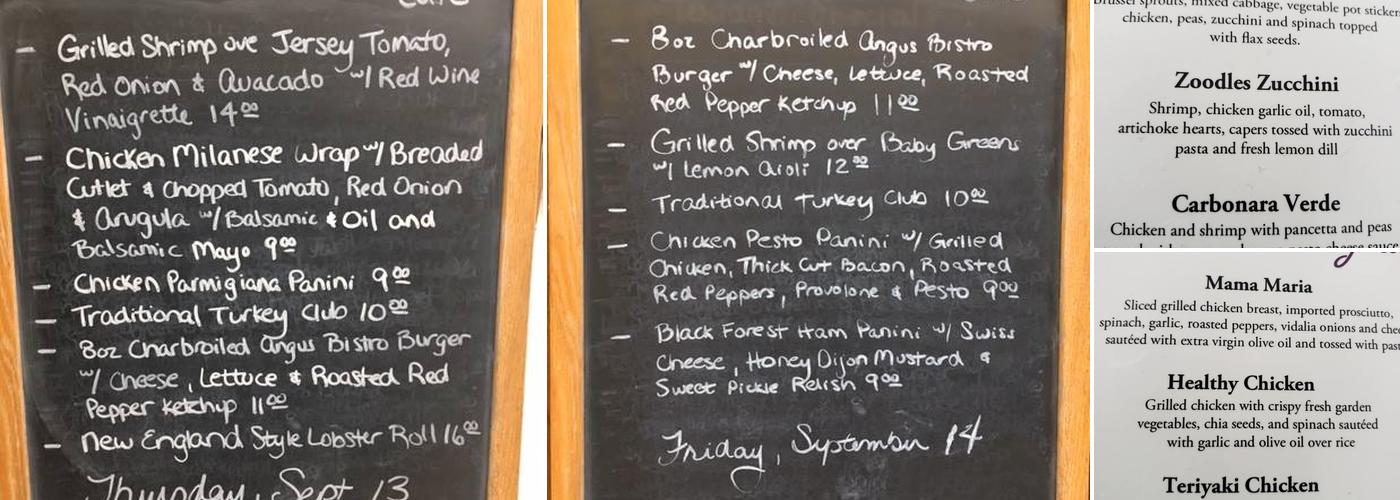 - Grilled Shrimp ove Jersey Tomato,
Red Onion & Avacado w/ Red Wine
Vinaigrette 14.00
- Chicken Milanese Wrap w/ Breaded
Cutlet & Chopped Tomato, Red Onion
& Arugula w/ Balsamic & Oil and
Balsamic Mayo 9.00
- Chicken Parmigiana Panini 9.00
- Traditional Turkey Club 10.00
- 8oz Charbroiled Angus Bistro Burger
w/ Cheese, Lettuce & Roasted Red
Pepper Ketchup 11.00
- New England Style Lobster Roll 16.00
Thursday, Sept 13
- 8oz Charbroiled Angus Bistro
Burger w/ Cheese, Lettuce, Roasted
Red Pepper Ketchup 11.00
- Grilled Shrimp over Baby Greens
w/ Lemon Aioli 12.00
- Traditional Turkey Club 10.00
- Chicken Pesto Panini w/ Grilled
Chicken, Thick Cut Bacon, Roasted
Red Peppers, Provolone & Pesto 9.00
- Black Forest Ham Panini w/ Swiss
Cheese, Honey Dijon Mustard &
Sweet Pickle Relish 9.00
Friday, September 14
sprouts, mixed cabbage, vegetable pot sticker
chicken, peas, zucchini and spinach topped
with flax seeds.
Zoodles Zucchini
Shrimp, chicken garlic oil, tomato,
artichoke hearts, capers tossed with zucchini
pasta and fresh lemon dill
Carbonara Verde
Chicken and shrimp with pancetta and peas
cheese sauce
Mama Maria
Sliced grilled chicken breast, imported prosciutto,
spinach, garlic, roasted peppers, vidalia onions and
sautéed with extra virgin olive oil and tossed with
Healthy Chicken
Grilled chicken with crispy fresh garden
vegetables, chia seeds, and spinach sautéed
with garlic and olive oil over rice
Teriyaki Chicken